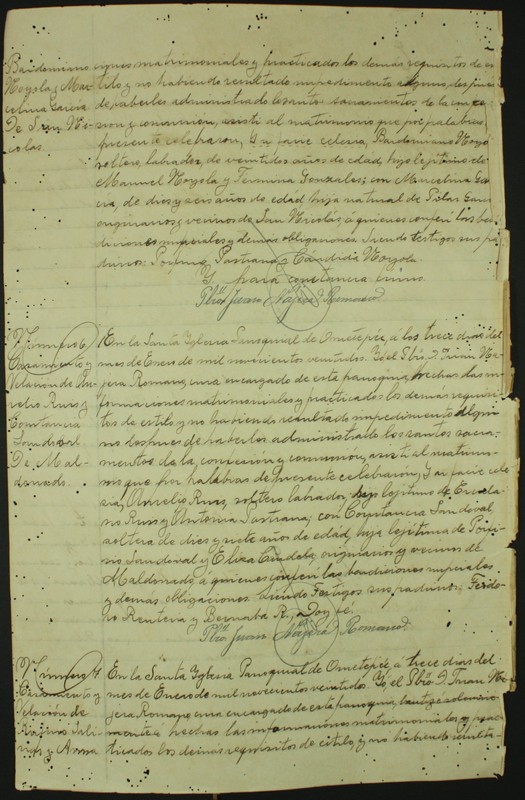 Bardomiano
Noyola y Mar-
celina Garcia
De San Ni-
colas.
ciones matrimoniales y practicados los demás requisitos de es
tilo y no habiendo resultado impedimento alguno, despues
de haberles administrado los santos sacramentos de la confe-
sion y comunion, asisti al matrimonio que por palabras
presente celebraron, y in facie eclesia, Bardomiano Noyo
soltero, labrador, de veintidos años de edad, hijo lejitimo de
Manuel Noyola y Gonzales; con Marcelina Gar
cia, de dies y seis años de edad hija natural de Pilar Garci
originarios y vecinos de San Nicolás, á quienes conferi las ben
diciones nupciales y demas obligaciones. Siendo testigos sus pa
drinos: Porfirio Pastrana y Candida Noyola.
Y para constancia firmo.
Pbro. Juan Nájera Romano
Número 6
Casamiento y
Velacion de Au-
relio Ruis y
Constancia
Sandoval
De Mal-
donado.
En la Santa Yglesia Parroquial de Ometepéc, á los trece dias del
mes de Enero de mil novecientos veintidos. Yo el Pbro. D. Juan Ná-
jera Romano, cura encargado de esta parroquia, hechas las in-
formaciones matrimoniales y practicado los demás requisi-
tos de estilo y no habiendo resultado impedimento algun
no despues de haberles administrado los santos sacra-
mentos de la confesión y comunion, asisti al matrimo-
nio que por palabras de presente celebraron, y in facie ecle
sia, Aurelio Ruis, soltero labrador, hijo lejitimo de
Ruis y Antonia Pastrana; con Constancia Sandoval,
soltera de dies y siete años de edad, hija lejitima de
Sandoval y Eliza originarios y vecinos de
Maldonado, a quienes conferi las bendiciones nupciales
y demas obligaciones. Siendo Testigos sus padrinos:
Renteria y Bernaba R., Doy fé.
Pbro. Juan Nájera Romano
Número 7
Casamiento y
Velación de
y Anna
En la Santa Yglesia Parroquial de Ometepéc, a trece dias del
mes de Enero de mil novecientos veintidos. Yo el Pbro. D. Juan Ná-
jera Romano cura encargado de esta parroquia,
hechas las informaciones matrimoniales y prac-
ticados los demás requisitos de estilo, y no habiendo resulta-